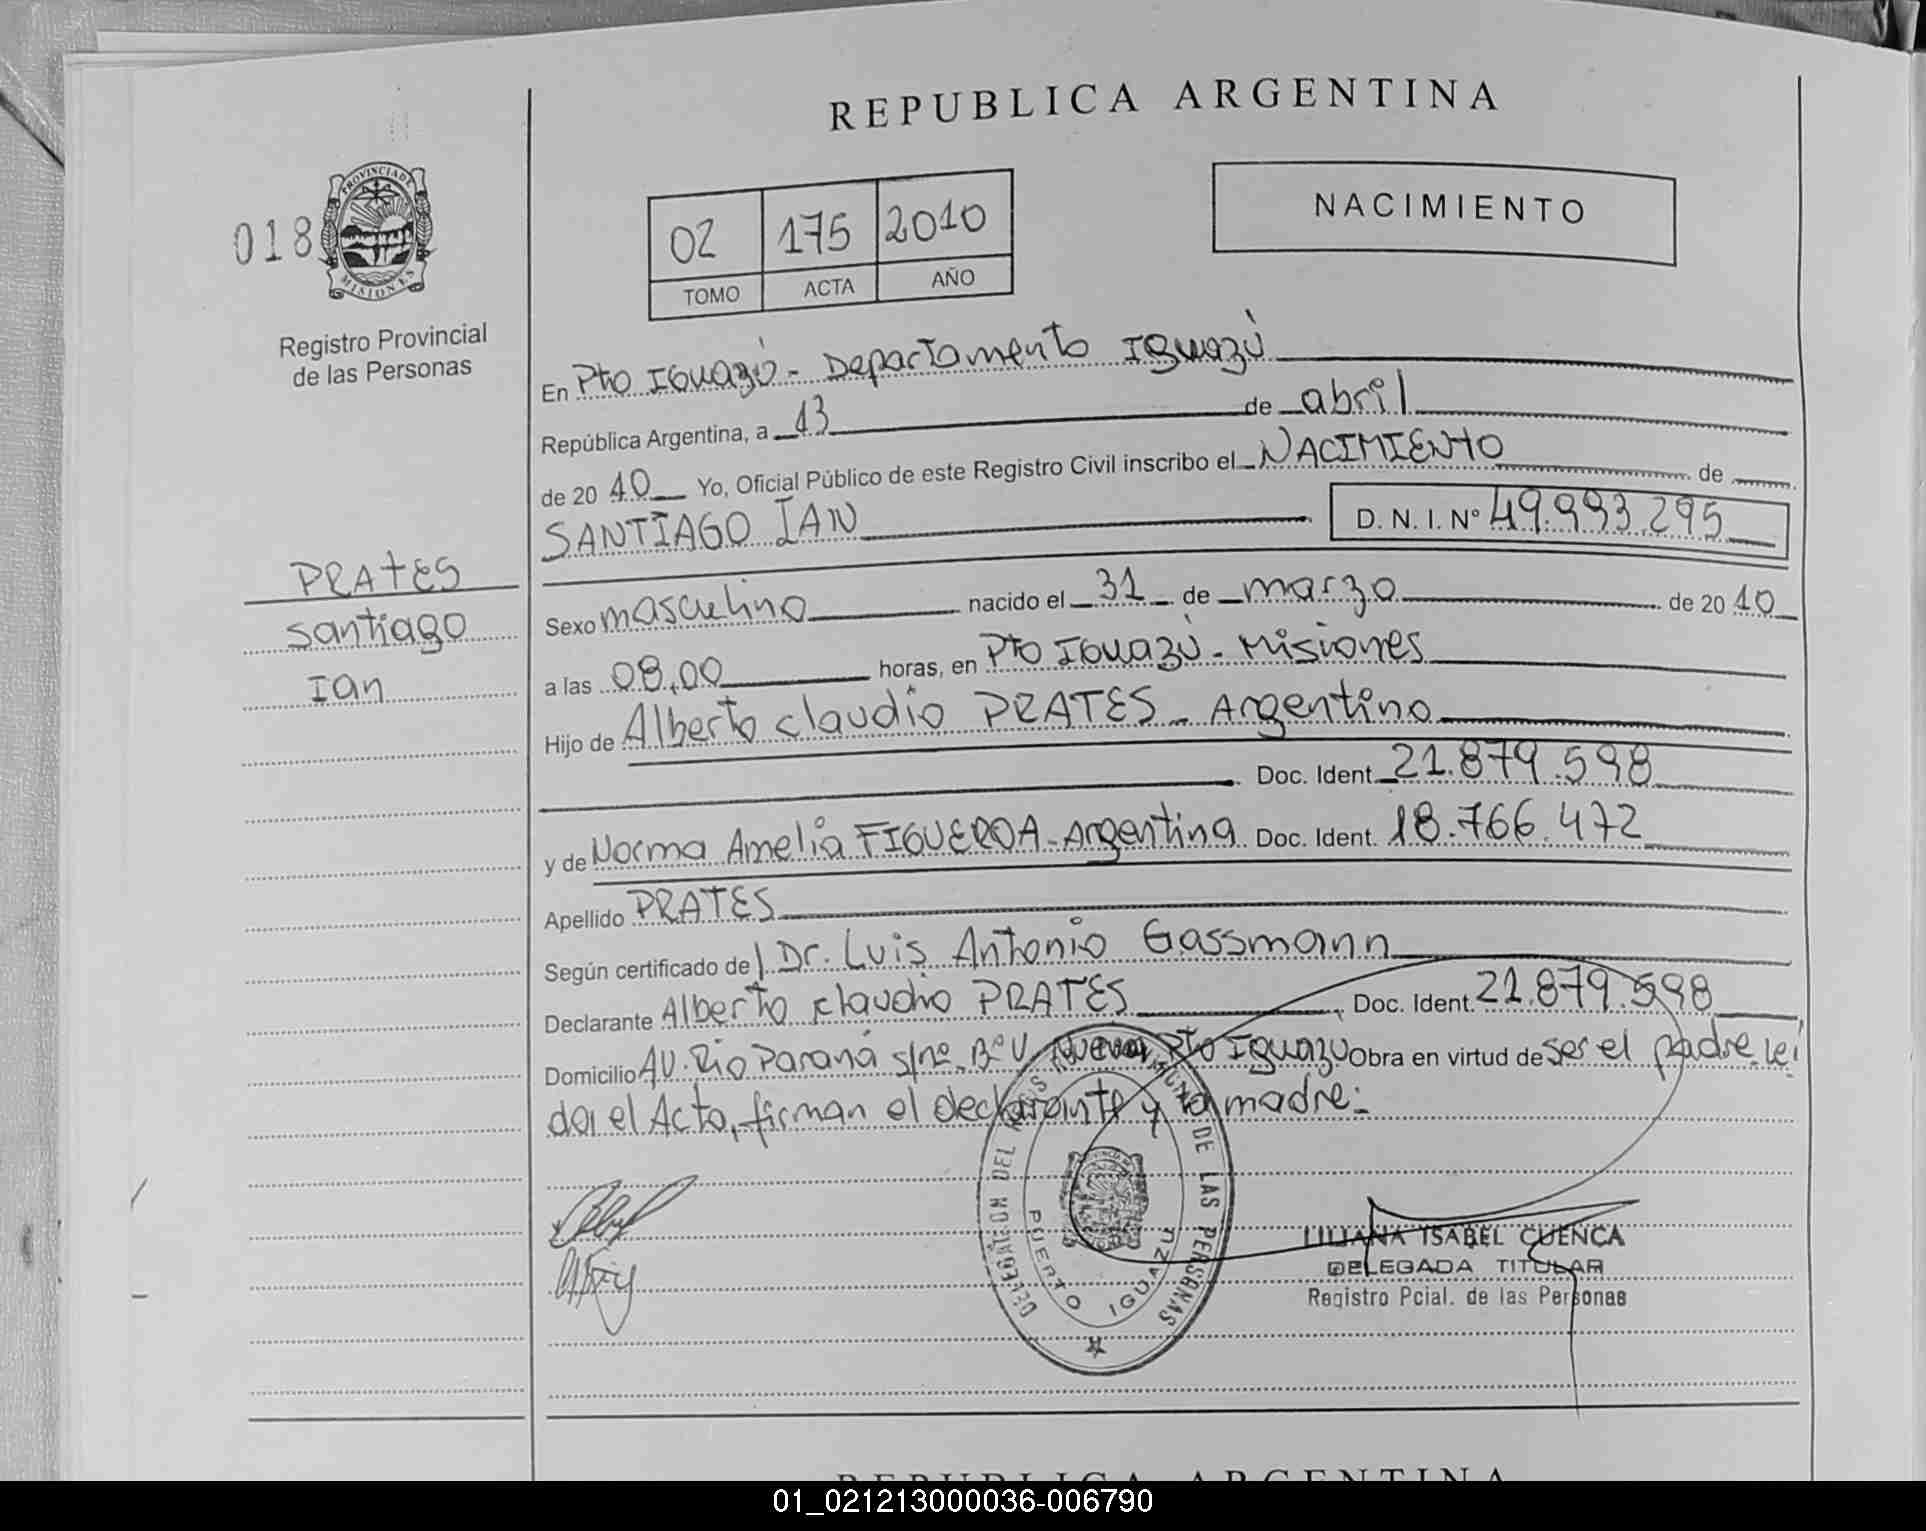 REPUBLICA ARGENTINA
018
PROVINCIA DE
MISIONES
Registro Provincial
de las Personas
02 175 2010
TOMO ACTA AÑO
NACIMIENTO
En Pto Iguazú - Departamento Iguazú
República Argentina, a 13 de abril
de 20 10 Yo, Oficial Público de este Registro Civil inscribo el NACIMIENTO de
SANTIAGO IAN D. N. I. Nº 49.993.295
PRATES
Santiago
Ian
Sexo masculino nacido el 31 de marzo de 20 10
a las 08,00 horas, en Pto Iguazú - Misiones
Hijo de Alberto Claudio PRATES - Argentino
Doc. Ident. 21.879.598
y de Norma Amelia FIGUEROA - Argentina Doc. Ident. 18.766.472
Apellido PRATES
Según certificado del Dr. Luis Antonio Gassmann
Declarante Alberto Claudio PRATES Doc. Ident. 21.879.598
Domicilio AV. Rio Paraná s/nº. Bº V. Nueva Pto Iguazu Obra en virtud de ser el padre. Lei
da el Acto, firman el declarante y la madre:
DELEGACION DEL DE LAS PERSONAS
PUERTO IGUAZU
LILIANA ISABEL CUENCA
DELEGADA TITULAR
Registro Pcial. de las Personas
REPUBLICA ARGENTINA
01_021213000036-006790